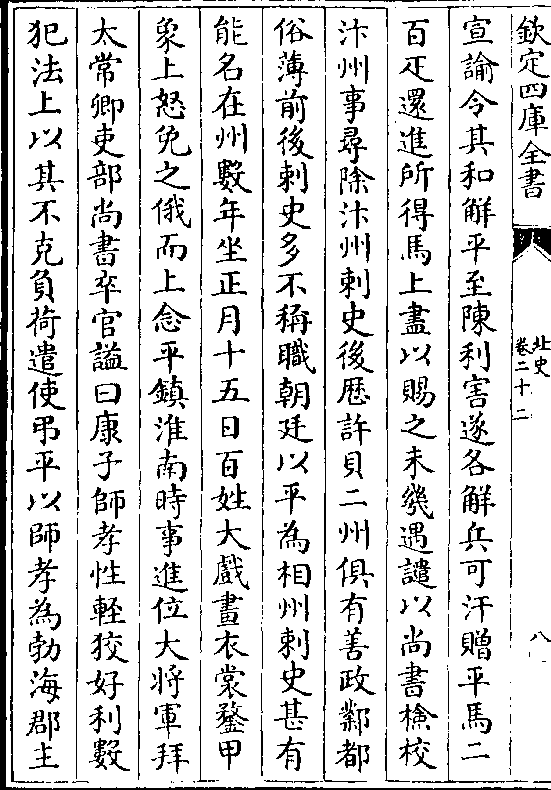 欽定四庫全書
北史
卷二十二
八
宣諭令其和解平至陳利害遂各解兵可汗贈平馬二
百疋還進所得馬上盡以賜之未幾遇譴以尚書檢校
汴州事尋除汴州刺史後歴許貝二州俱有善政鄴都
俗薄前後刺史多不稱職朝廷以平為相州刺史甚有
能名在州數年坐正月十五日百姓大戲畫衣裳鍪甲
象上怒免之俄而上念平鎮淮南時事進位大將軍拜
太常卿吏部尚書卒官謚曰康子師孝性輕狡好利數
犯法上以其不克負荷遣使弔平以師孝為勃海郡主